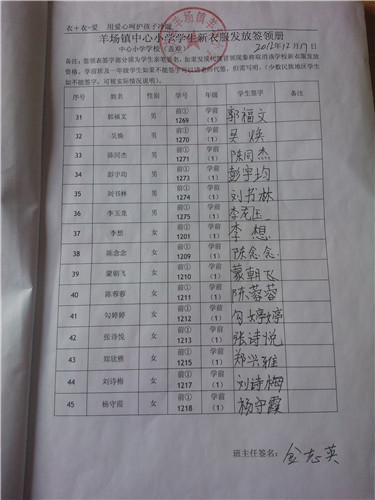 衣+衣=爱 用爱心呵护孩子冷暖
羊场镇中心小学学生新衣服发放签领册
中心小学学校（盖章） 2012年12月17日
备注：签领表签字部分须为学生亲笔签名，如果发现代替冒领现象将取消该学校新衣服发放
资格，学前班及一年级学生如果不能签字可以请老师代签，但需写明。（少数民族地区学生
如不能签字，可视实际情况说明）。
序号 姓名 性别 学号 年级 学生签字 备注
31 郭福文 男 前①1269 学前（1） 郭福文
32 吴焕 男 前①1270 学前（1） 吴焕
33 陈同杰 男 前①1271 学前（1） 陈同杰
34 彭宇均 男 前①1273 学前（1） 彭宇均
35 刘书林 男 前①1274 学前（1） 刘书林
36 李玉龙 男 前①1275 学前（1）
37 李想 女 前①1201 学前（1） 李想
38 陈念念 女 前①1209 学前（1） 陈念念
39 蒙朝飞 女 前①1210 学前（1） 蒙朝飞
40 陈蓉蓉 女 前①1211 学前（1） 陈蓉蓉
41 勾婷婷 女 前①1212 学前（1） 勾婷婷
42 张诗悦 女 前①1213 学前（1） 张诗悦
43 郑欣雅 女 前①1215 学前（1） 郑兴雅
44 刘诗梅 女 前①1217 学前（1） 刘诗梅
45 杨守霞 女 前①1218 学前（1） 杨守霞
班主任签名： 金志英